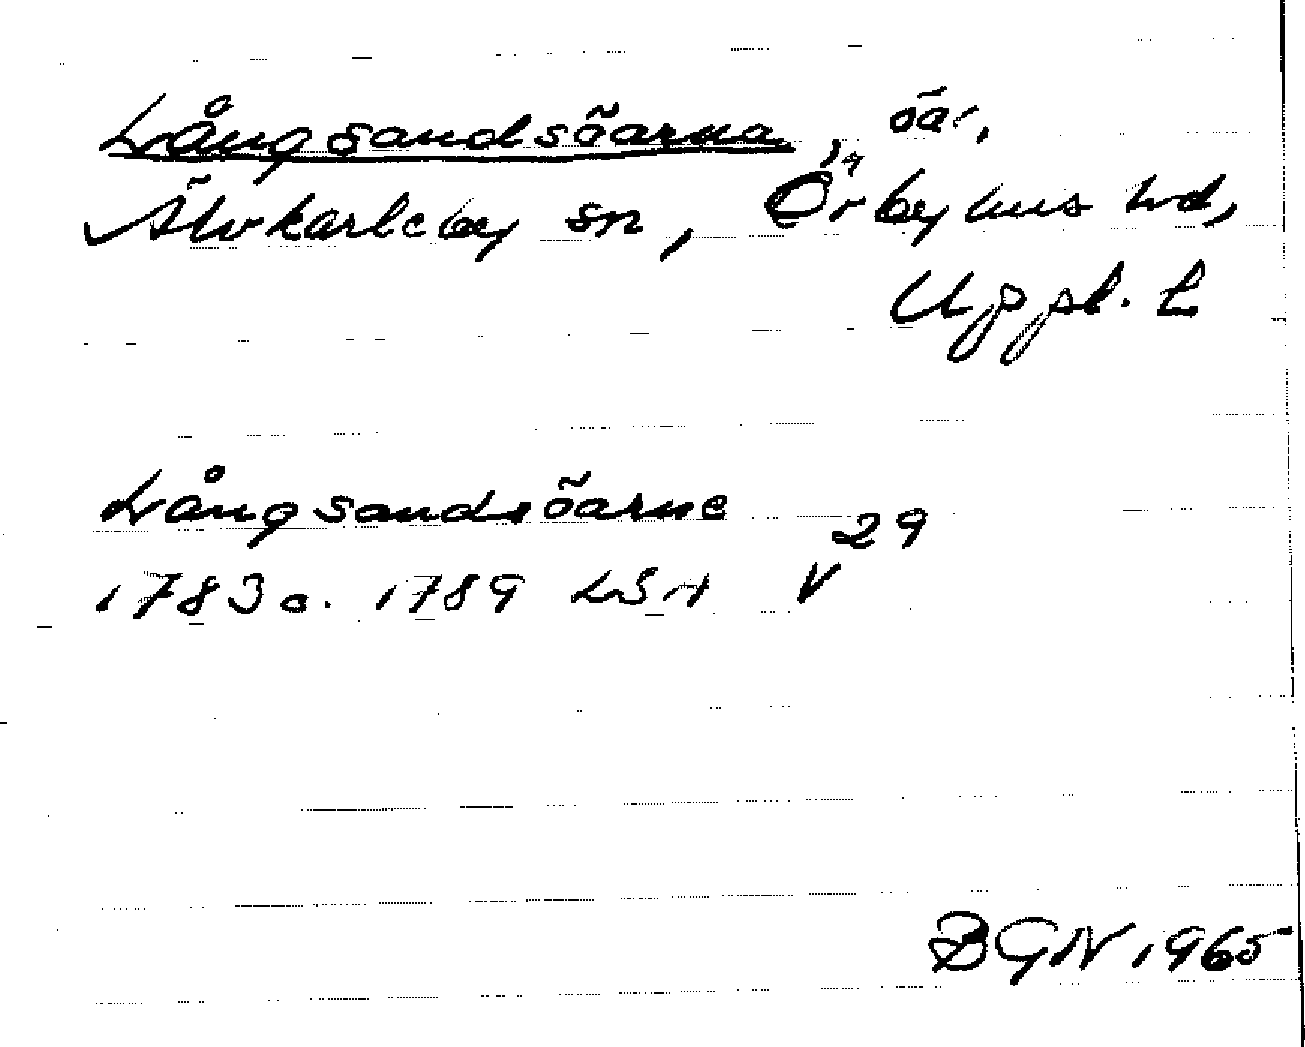 Långsandsöarna, öar,
Älvkarleby sn, Örbyhus hd,
Uppl. L
Långsandsöarne
1783 o. 1789 LSA V 29
BGN 1965